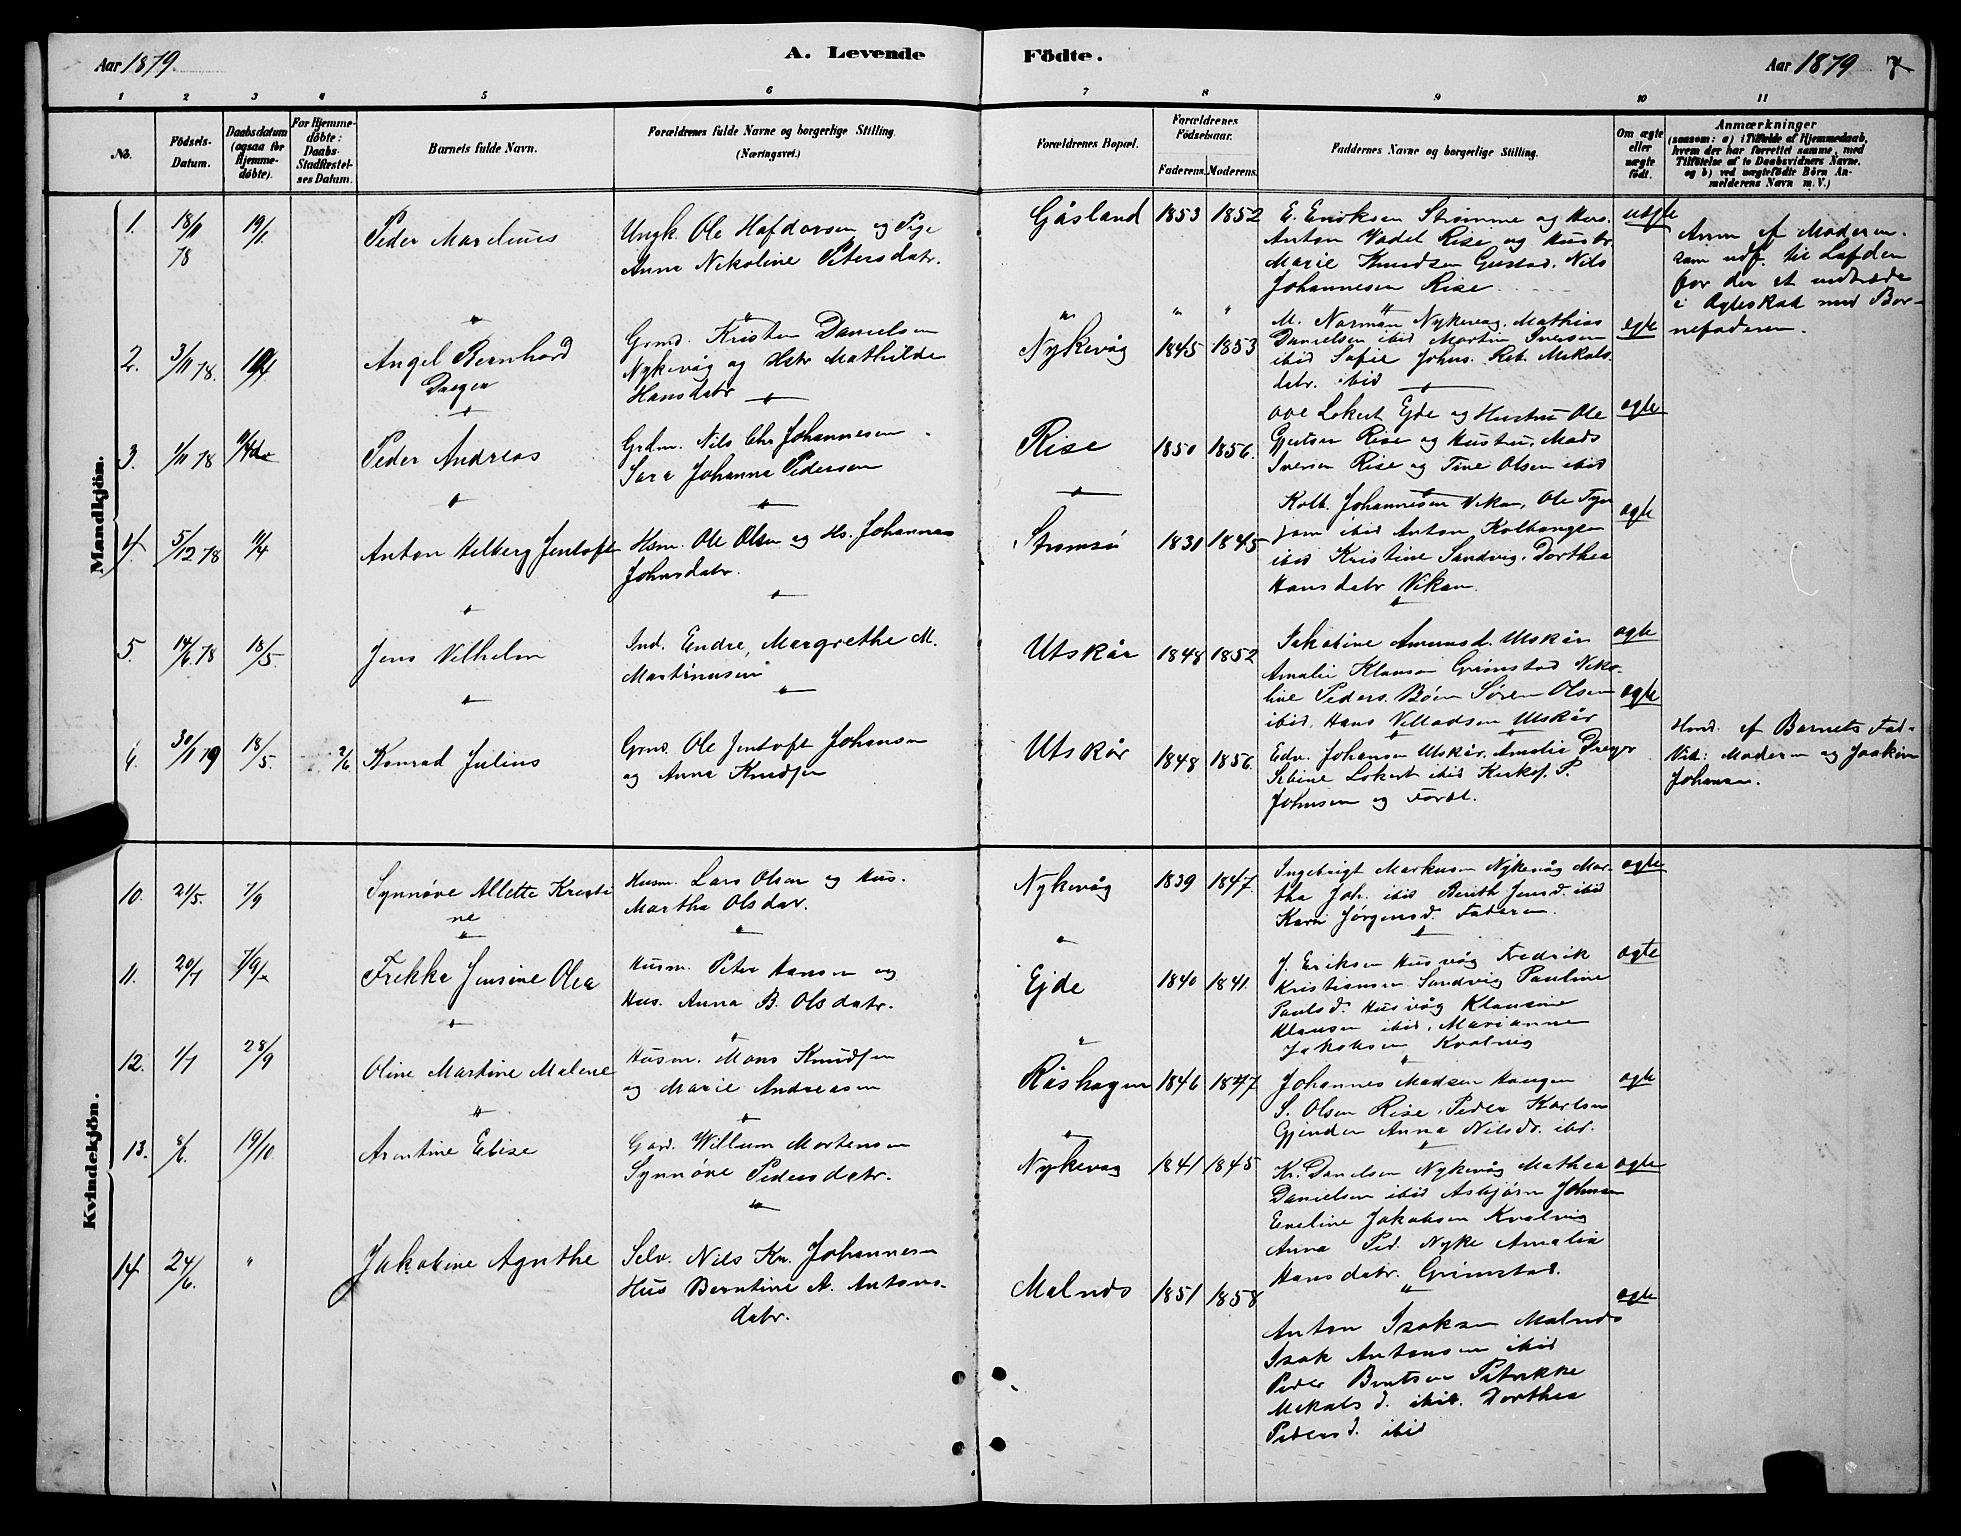 Aar 1879
A. Levende
Födte.
Aar 1879 7
1 2 3 4 5 6 7 8 9 10 11
No.
Födsels-
Datum.
Daabsdatum
(ogsaa for
Hjemme-
döbte).
For Hjemme-
döbte:
Daabs-
Stadfæstel-
ses Datum.
Barnets fulde Navn.
Forældrenes fulde Navne og borgerlige Stilling.
(Næringsvei.)
Forældrenes Bopæl.
Forældrenes
Födselsaar.
Faderens. Moderens.
Faddernes Navne og borgerlige Stilling.
Om ægte
eller
uægte
födt.
Anmærkninger
(saasom: a) i Tilfælde af Hjemmedaab,
hvem der har forrettet samme, med
Tilföielse af to Daabsvidners Navne.
og b) ved uægtefödte Börn An-
melderens Navn m. V.)
Mandkjön.
1. 18/11 78 19/1. Peder Marelius
Ungk. Ole Hafdorsen og Pige
Anna Nikoline Petersdatr.
Gåsland 1853 1852
E. Eriksen Strømme og Hus.
Anton Vadel Rise og Hustr.
Marie Knudsen Gustad. Nils
Johannesen Rise
uægte
Anm af Moderen.
som udf. til Lofoden
for der at indtræde
i Ægteskab med Bar-
nefaderen.
2. 3/11 78. Angel Bernhard
Grmd. Kristen Danielsen
Nykevåg og Hstr Mathilde
Hansdatr
Nykevåg 1845 1853
M. Norman Nykevåg. Mathias
Danielsen ibid Martin Iversen
ibid Sofie Johns. Reb. Mikals
datr. ibid
ægte
3. 1/11 78 Peder Andreas
Grdm. Nils Chr Johannesen
Sara Johanna Pedersen
Rise 1850 1856.
Ove Lokert Ejde og Hustru Ole
Rise og Hustru, Mads
Iversen Rise og Tine Olsen ibid
ægte
4. 5/12 78 11/4 Anton Helberg Jentoft
Hsm. Ole Olsen og Hs. Johanna
Johnsdatr.
Strømsø 1830 1845
Kolb. Johannesen Vikan, Ole
ibid Anton Kolbangsen
ibid Kristine Sandvig. Dorthea
Hansdatr Vikan.
ægte
5. 14/6 78 18/5 Jens Vilhelm
Ind. Endre, Margrethe M.
Martinusen
Utskår 1848 1852
Jakobine Amunsd. Utskår
Amalie Klausen Grimstad Niko-
line Peders. Bøen Søren Olsen
ibid, Hans Villadsen Utskår
ægte
6. 30/1 79 18/5. 2/6 Konrad Julius
Grmd. Ole Jentoft Johansen
og Anna Knudsen
Utskår 1848 1856.
Edv. Johansen Utskår, Amalie Dreyer
Sebine Lokert ibid Kirkes. P.
Johnsen og Fordl.
ægte
Hmd. af Barnets Fad-
Vid: Moderen og Joakim
Johansen.
Kvindekjön.
10. 21/5. 7/9 Synnøve Allette Kristi
ne
Husm. Lars Olsen og Hus.
Martha Olsdatr.
Nykevåg 1839 1847.
Ingebrigt Markusen Nykevåg Mar-
tha Joh. ibid Berith Jensd. ibid
Karn Jørgensd. Faderen.
ægte
11. 20/7 7/9 Frekka Jensine Olea
Husm. Peter Hansen og
Hus. Anna B. Olsdatr.
Ejde 1840 1841.
J. Eriksen Husvåg Fredrik
Kristiansen Sandvig Pauline
Paulsd. Husvåg Klausine
Klausen ibid. Marianne
Jakobsen Kvalvig
ægte
12. 1/7 28/9 Oline Martine Malene
Husm. Mons Knudsen
og Marie Andreasen
Råshagen 1846 1847
Johannes Madsen Haugen
S. Olsen Rise. Peder Karlsen
Gjenden Anna Nilsdr. ibd.
ægte
13. 8/6. 19/10. Arentine Elise
Gard. Willum Mortensen
Synnøve Pedersdatr.
Nykevåg 1841 1845
Kr. Danielsen Nykevåg Mathea
Danielsen ibid Asbjørn Johnsen
Eveline Jakobsen Kvalvig
Anna Ped. Nyke Amalia
Hansdatr. Grimstad.
ægte
14. 24/6. " Jakobine Agnthe
Selv. Nils Kr. Johannesen
Hus Berntine A. Antons-
datr.
Malnes 1851 1858
Anton Isaksen Malnes
Isak Antonsen ibid
Peder Bentsen Petrikke
Mikalsd. ibid. Dorthea
Pedersd. ibid
ægte